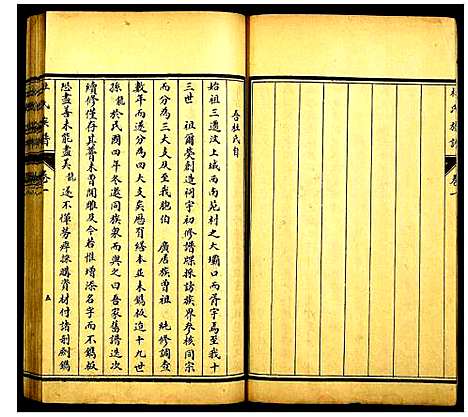 吾杜氏自
始祖三遷汶上城西南苑村之大壩口而胥宇焉至我十
三世 祖爾䓁創造祠宇初修譜牒採諸族界參核同宗
而分為三大支厥至我胞伯 廣居族曾祖 純修調查
數年而遂分為四大支矣厯有繕本並未鐫板迨十九世
孫 龍於民國四年冬邀同族衆而與之曰吾家舊譜迭次
續修僅存其普未曽開雕及今若惟增添名字而不鐫板
恐盡善未能盡美 龍 遂不憚勞瘁採購資材付諸剞劂鐫
杜氏族譜 卷一 五
杜氏族譜 卷一